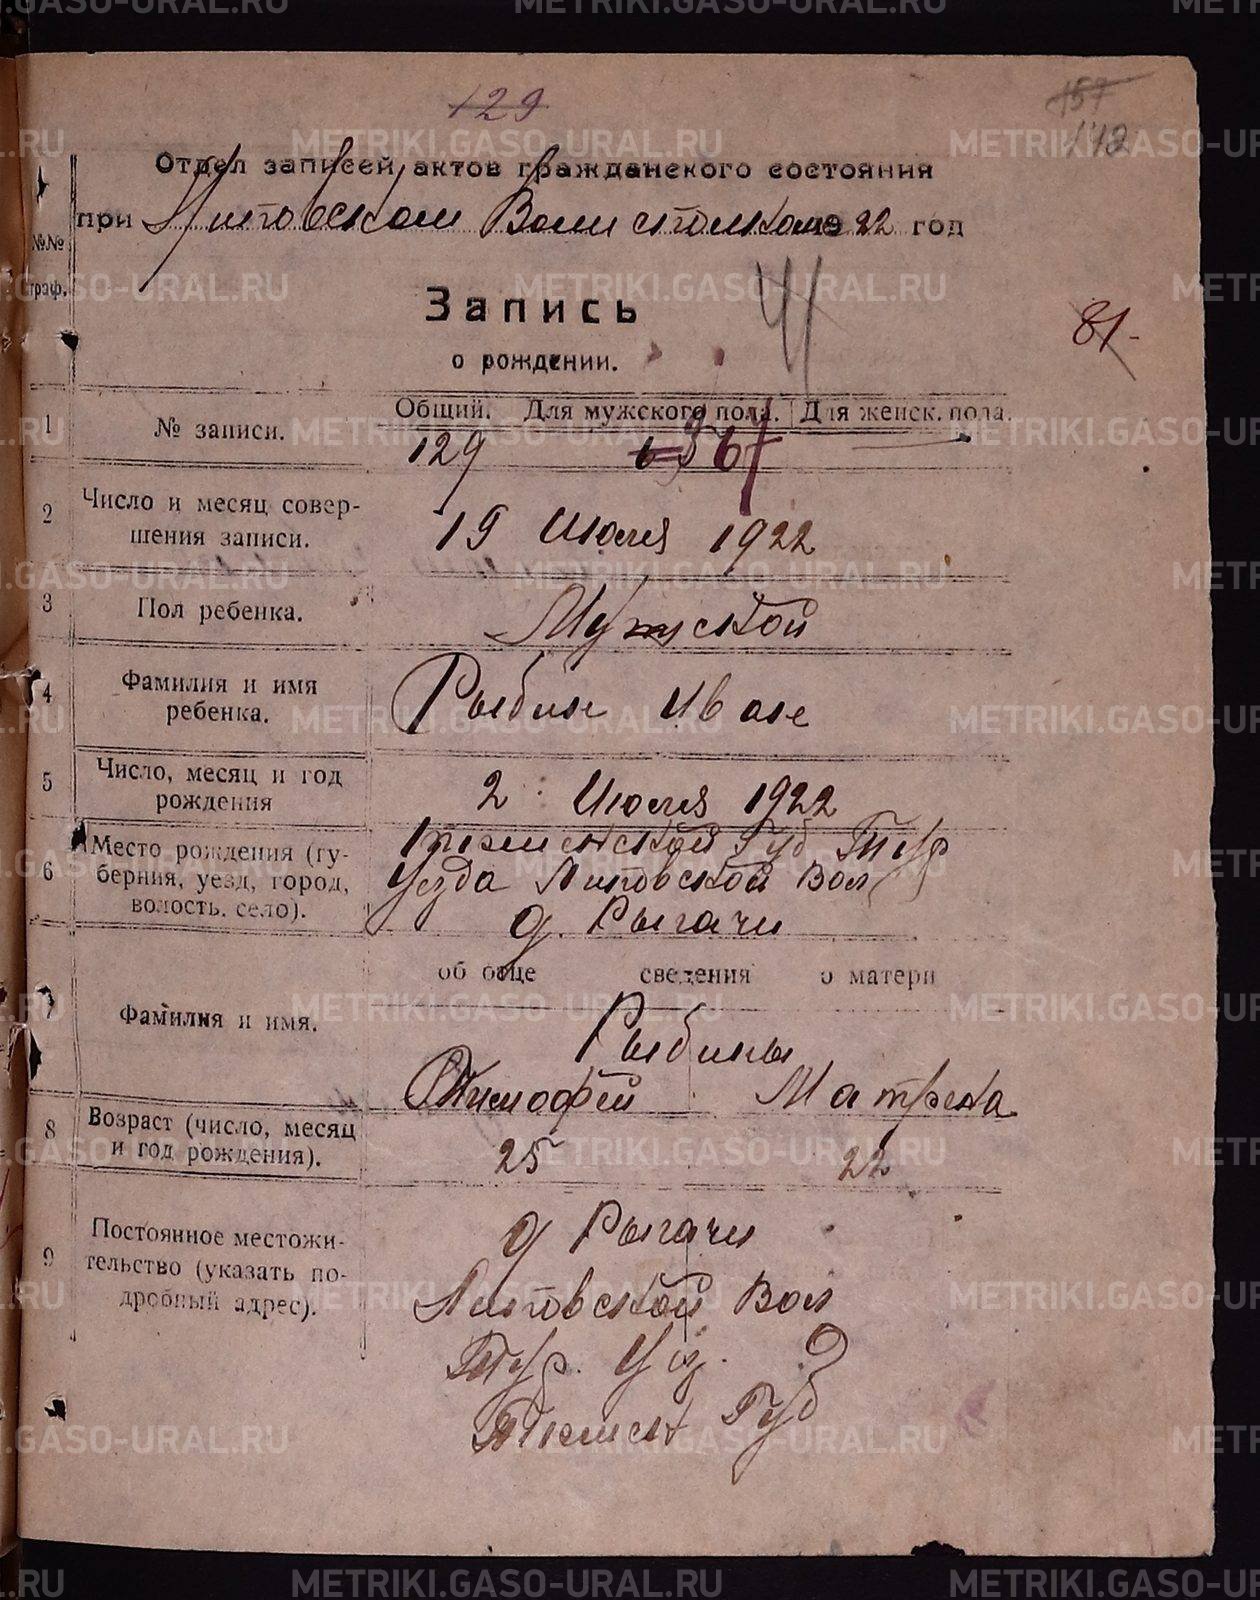 129
157
142
Отдел записей актов гражданского состояния
при Липовском Волисполкоме 22 год
№№ граф.
Запись
41
81-
о рождении.
Общий. Для мужского пола. Для женск. пола.
1 № записи. 129 67
2 Число и месяц совер-
шения записи. 19 Июля 1922
3 Пол ребенка. Мужской
4 Фамилия и имя
ребенка. Рыбин Иван
5 Число, месяц и год
рождения 2 Июля 1922
6 Место рождения (гу-
берния, уезд, город,
волость, село).
Тюменской Губ Тур
Уезда Липовской Вол
д. Рычачи
об отце сведения о матери
7 Фамилия и имя. Рыбины
Тимофей Матрена
8 Возраст (число, месяц
и год рождения). 25 22
9 Постоянное местожи-
тельство (указать по-
дробный адрес).
д Рычачи
Липовской Вол
Тур. Уез.
Тюмен Губ
METRIKI.GASO-URAL.RU